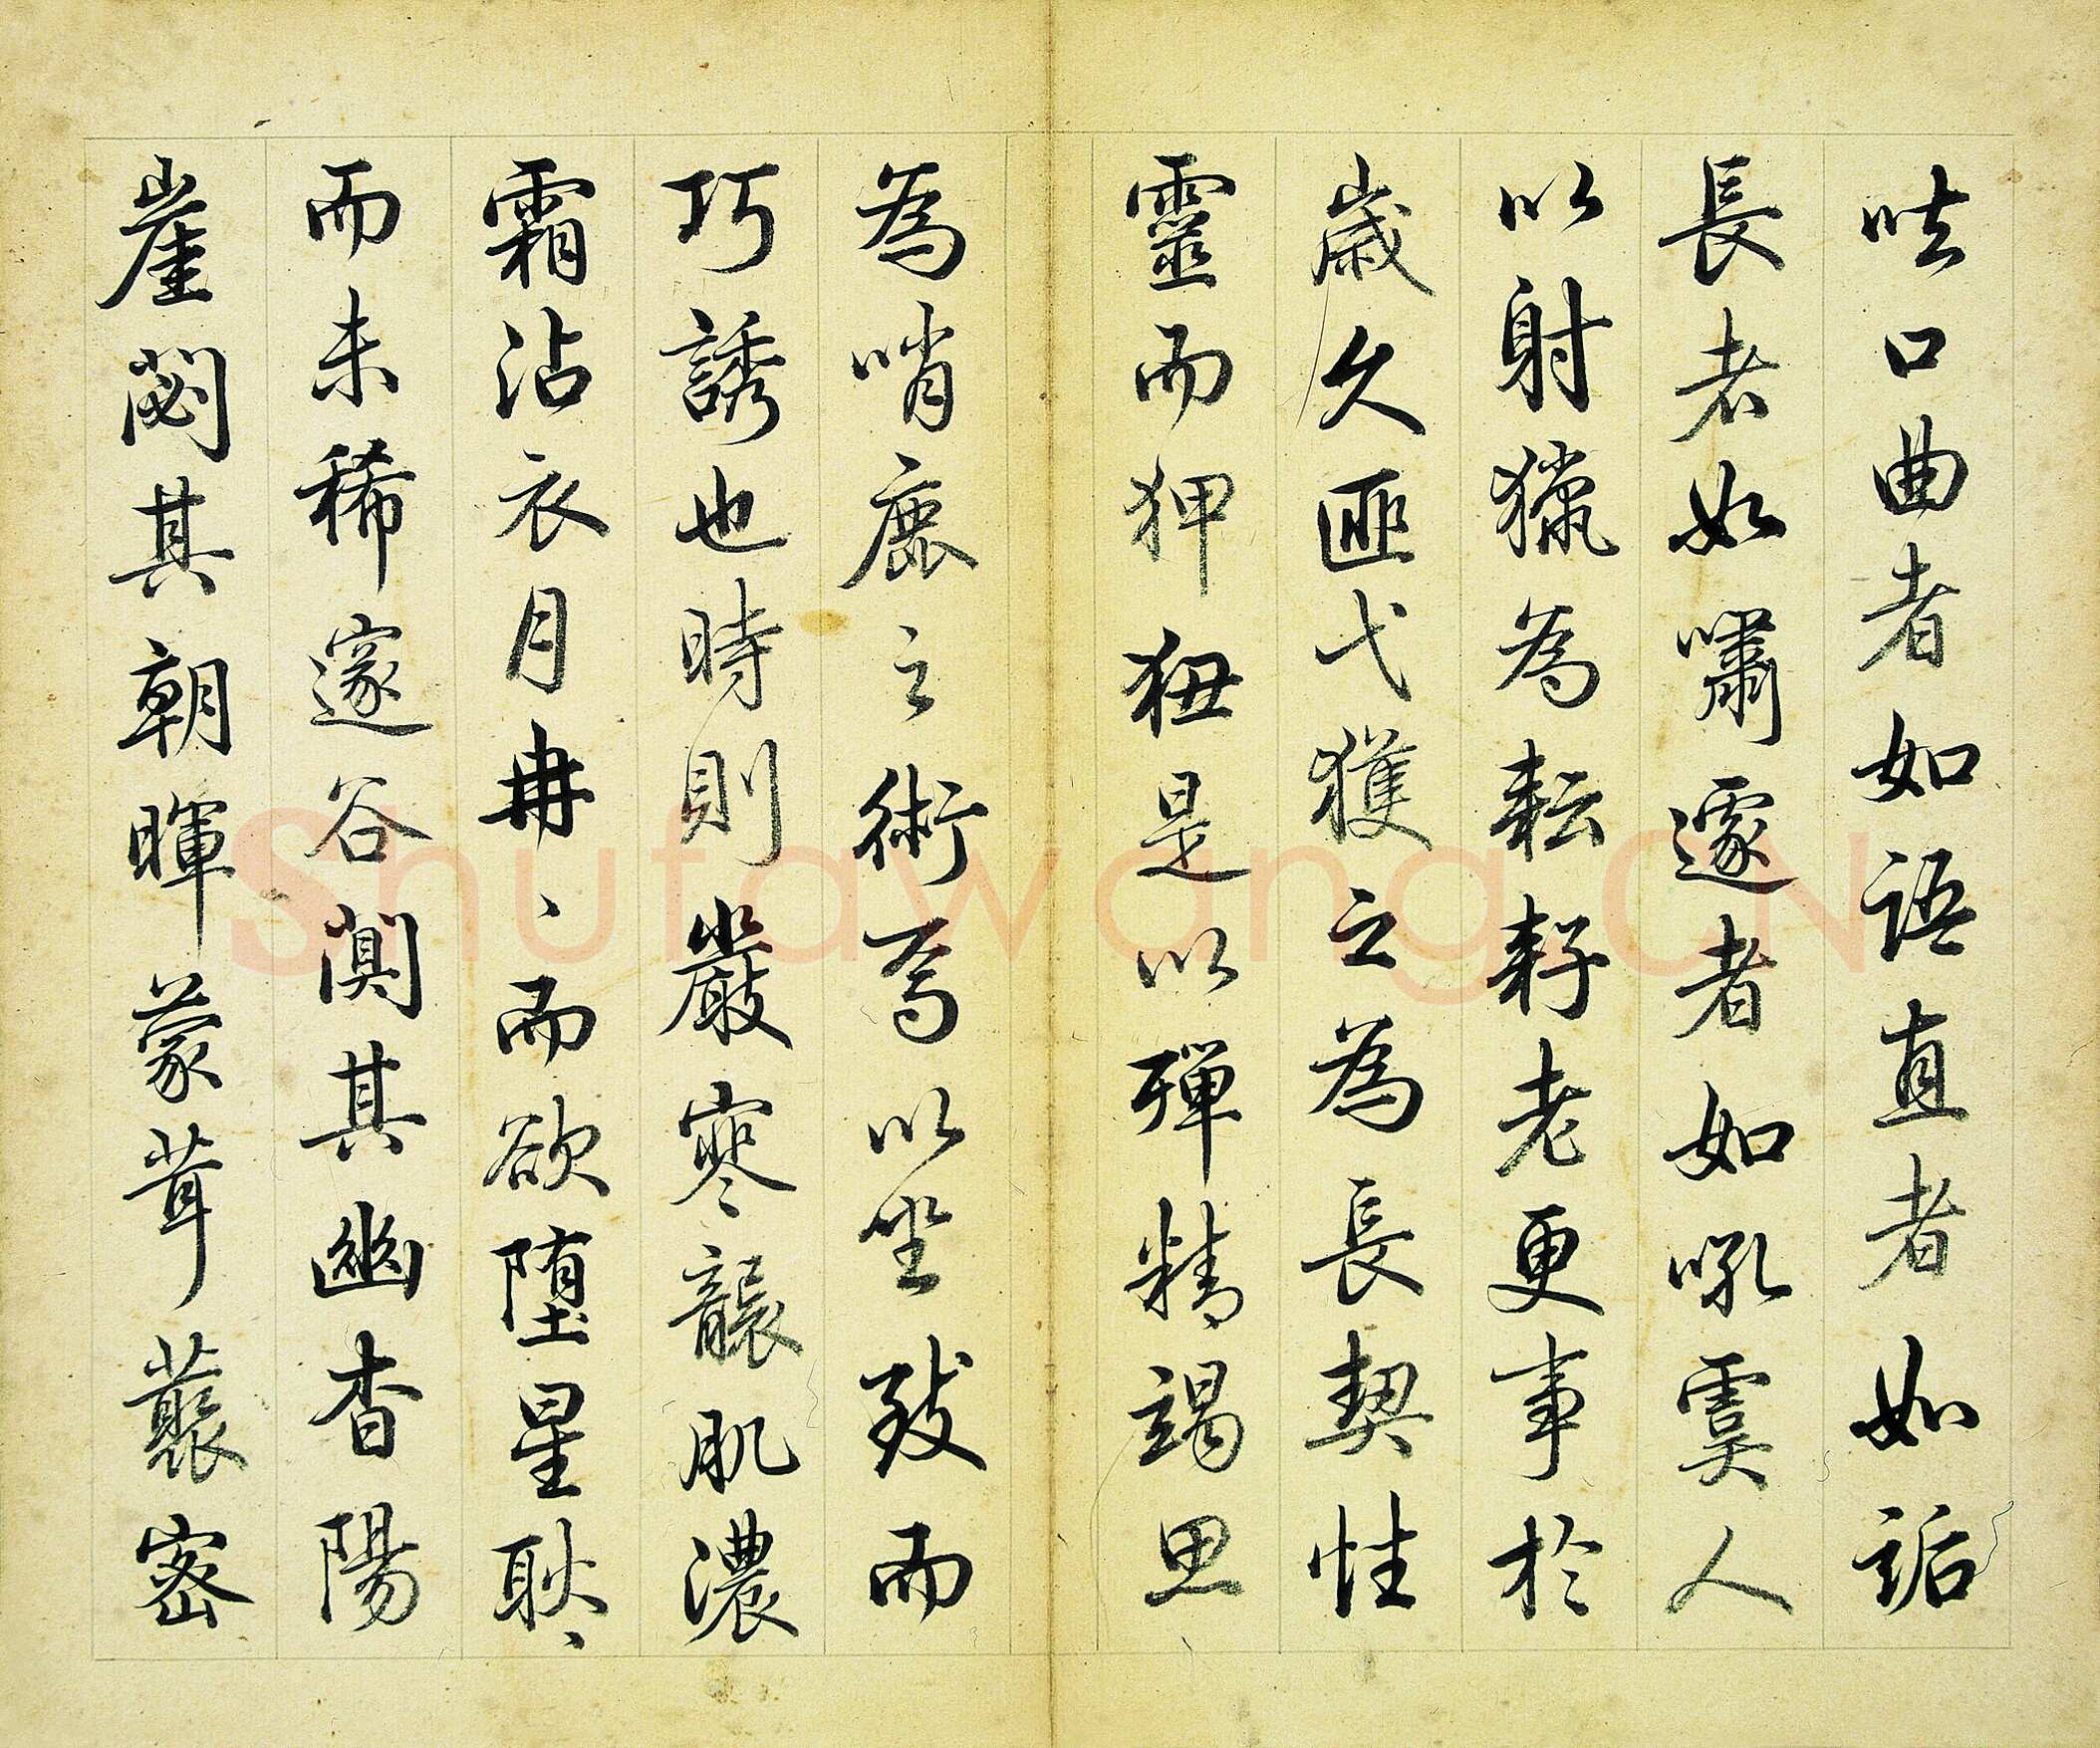 呿口曲者如語直者如詬
長者如嘯遽者如吼虞人
以射獵為耘耔老更事於
歲久匪弋獲之為長契性
靈而狎狃是以殫精竭思
為哨鹿之術焉以坐致而
巧誘也時則嚴寒襲肌濃
霜沾衣月冉丶而欲墮星耿丶
而未稀邃谷闃其幽杳陽
崖閟其朝暉蒙茸叢密
shufawang.CN